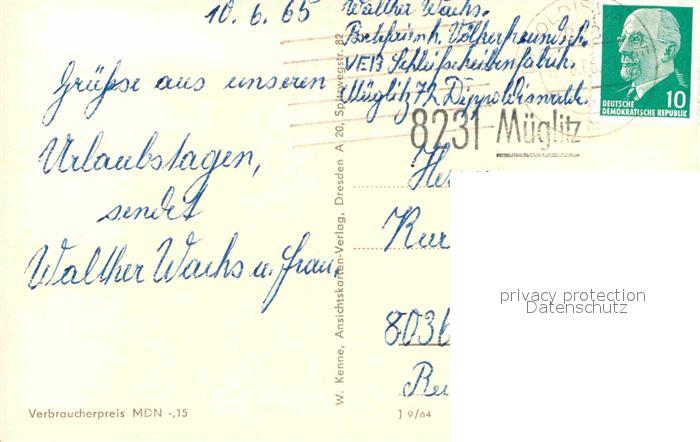 10. 6. 65
Grüsse aus unseren
Urlaubstagen,
sendet
Walther Wachs u. Frau.
Walther Wachs.
VEB Schleifscheibenfabrik
Müglitz 72 Dippoldiswalde.
8231 Müglitz
DEUTSCHE
DEMOKRATISCHE REPUBLIK
10
He
Kur
8036
privacy protection
Datenschutz
W. Kenne, Ansichtskarten-Verlag, Dresden A 20, Spitzwegstr. 82
Verbraucherpreis MDN -,15
J 9/64